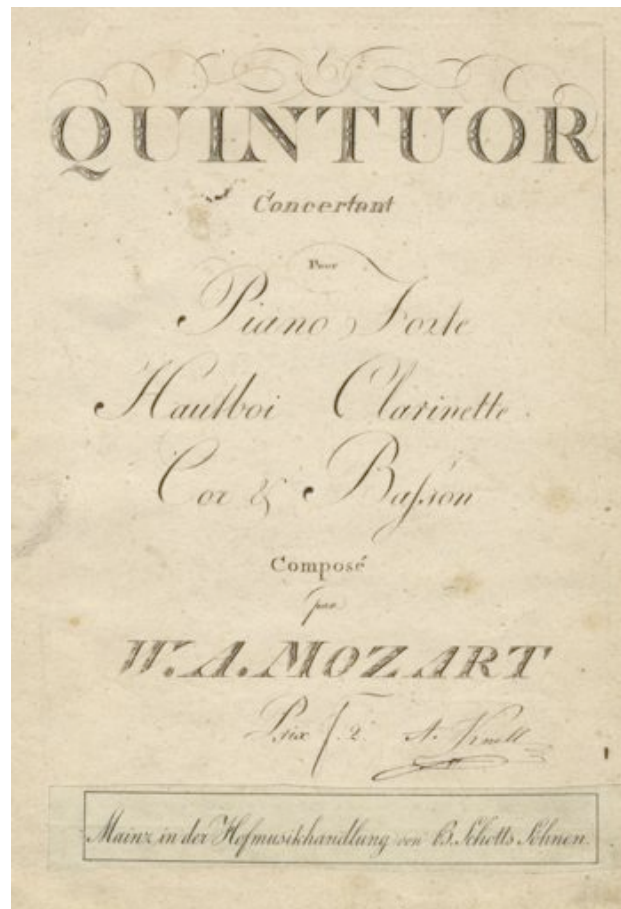 QUINTUOR
Concertant
Pour
Piano Forte
Hautboi Clarinette
Cor & Basson
Composé
par
W. A. MOZART
Prix f. 2.
Mainz in der Hofmusikhandlung von B. Schotts Söhnen.